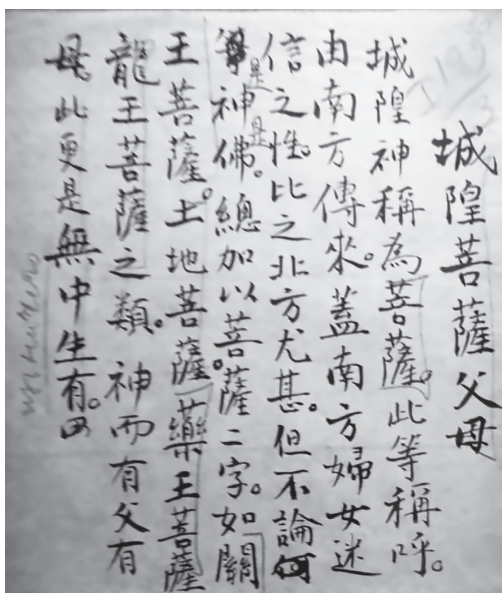 城隍菩薩父母
城隍神稱為菩薩。此等稱呼。
由南方傳來。蓋南方婦女迷
信之性。比之北方尤甚。但不論何
是神是佛。總加以菩薩二字。如關
王菩薩。土地菩薩 藥王菩薩
龍王菩薩之類。神而有父有
母。此更是無中生有。